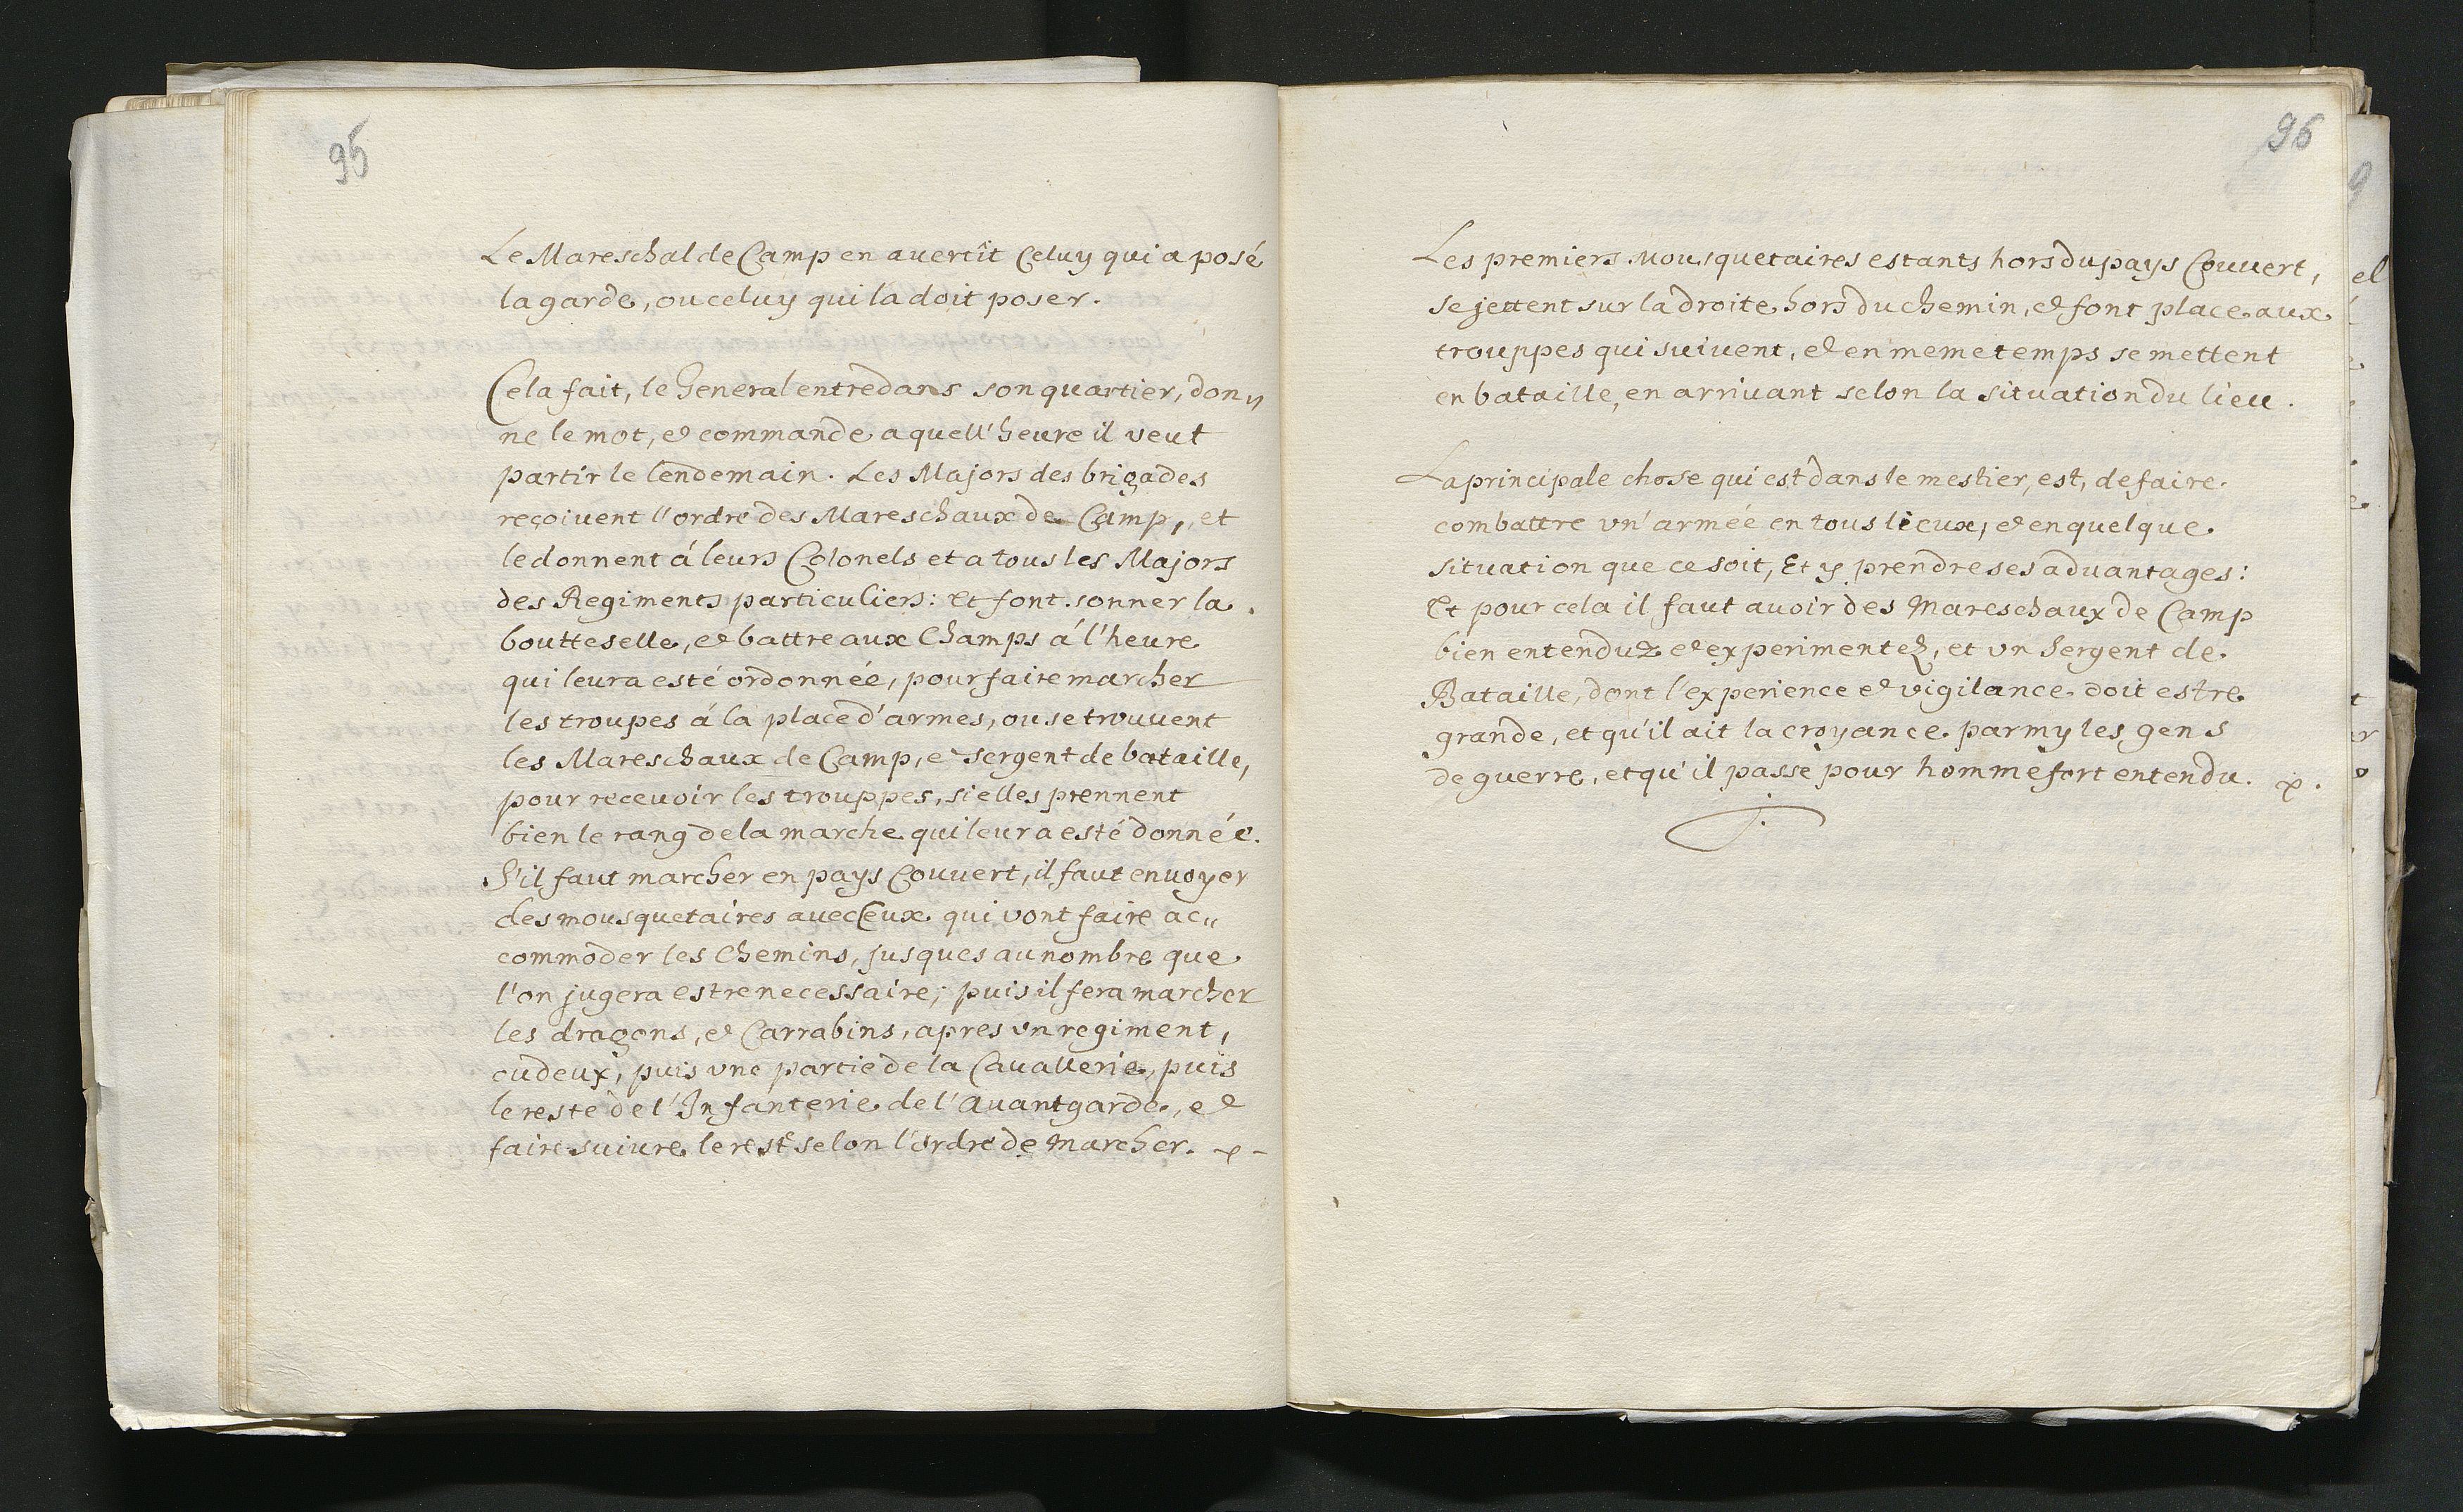 95
Le Mareschal de Camp en auertît Celuy qui a posé
la garde, ou celuy qui la doit poser.
Cela fait, le General entre dans son quartier, don„
ne le mot, et commande a quell'heure il veut
partir le lendemain. Les Majors des brigades
reçoiuent l'ordre des Mareschaux de Camp, et
le donnent á leurs Colonels et a tous les Majors
des Regiments particuliers: et font sonner la
boutteselle, et battre aux Champs á l'heure
qui leur a esté ordonnée, pour faire marcher
les troupes á la place d'armes, ou se trouuent
les Mareschaux de Camp, et sergent de bataille,
pour receuoir les trouppes, si elles prennent
bien le rang de la marche qui leur a esté donnée.
S'il faut marcher en pays Couuert, il faut enuoyer
des mousquetaires auec Ceux qui vont faire ac„
commoder les Chemins, jusques au nombre que
l'on jugera estre necessaire; puis il fera marcher
les dragons, et Carrabins, apres vn regiment,
ou deux, puis vne partie de la Cauallerie, puis
le reste de l'Infanterie de l'Auantgarde, et
faire suiure le reste selon l'ordre de marcher.
96
Les premiers Mousquetaires estants hors du pays Couuert,
se jettent sur la droite hors du chemin, et font place aux
trouppes qui suiuent, et en meme temps se mettent
en bataille, en arriuant selon la situation du lieu.
La principale chose qui est dans le mestier, est, de faire
combattre vn'armée en tous lieux, et en quelque
situation que ce soit, Et y prendre ses aduantages:
Et pour cela il faut auoir des Mareschaux de Camp
bien entenduz et experimentez, et vn Sergent de
Bataille, dont l'experience et vigilance doit estre
grande, et qu'il ait la croyance parmy les gens
de guerre, et qu'il passe pour homme fort entendu.